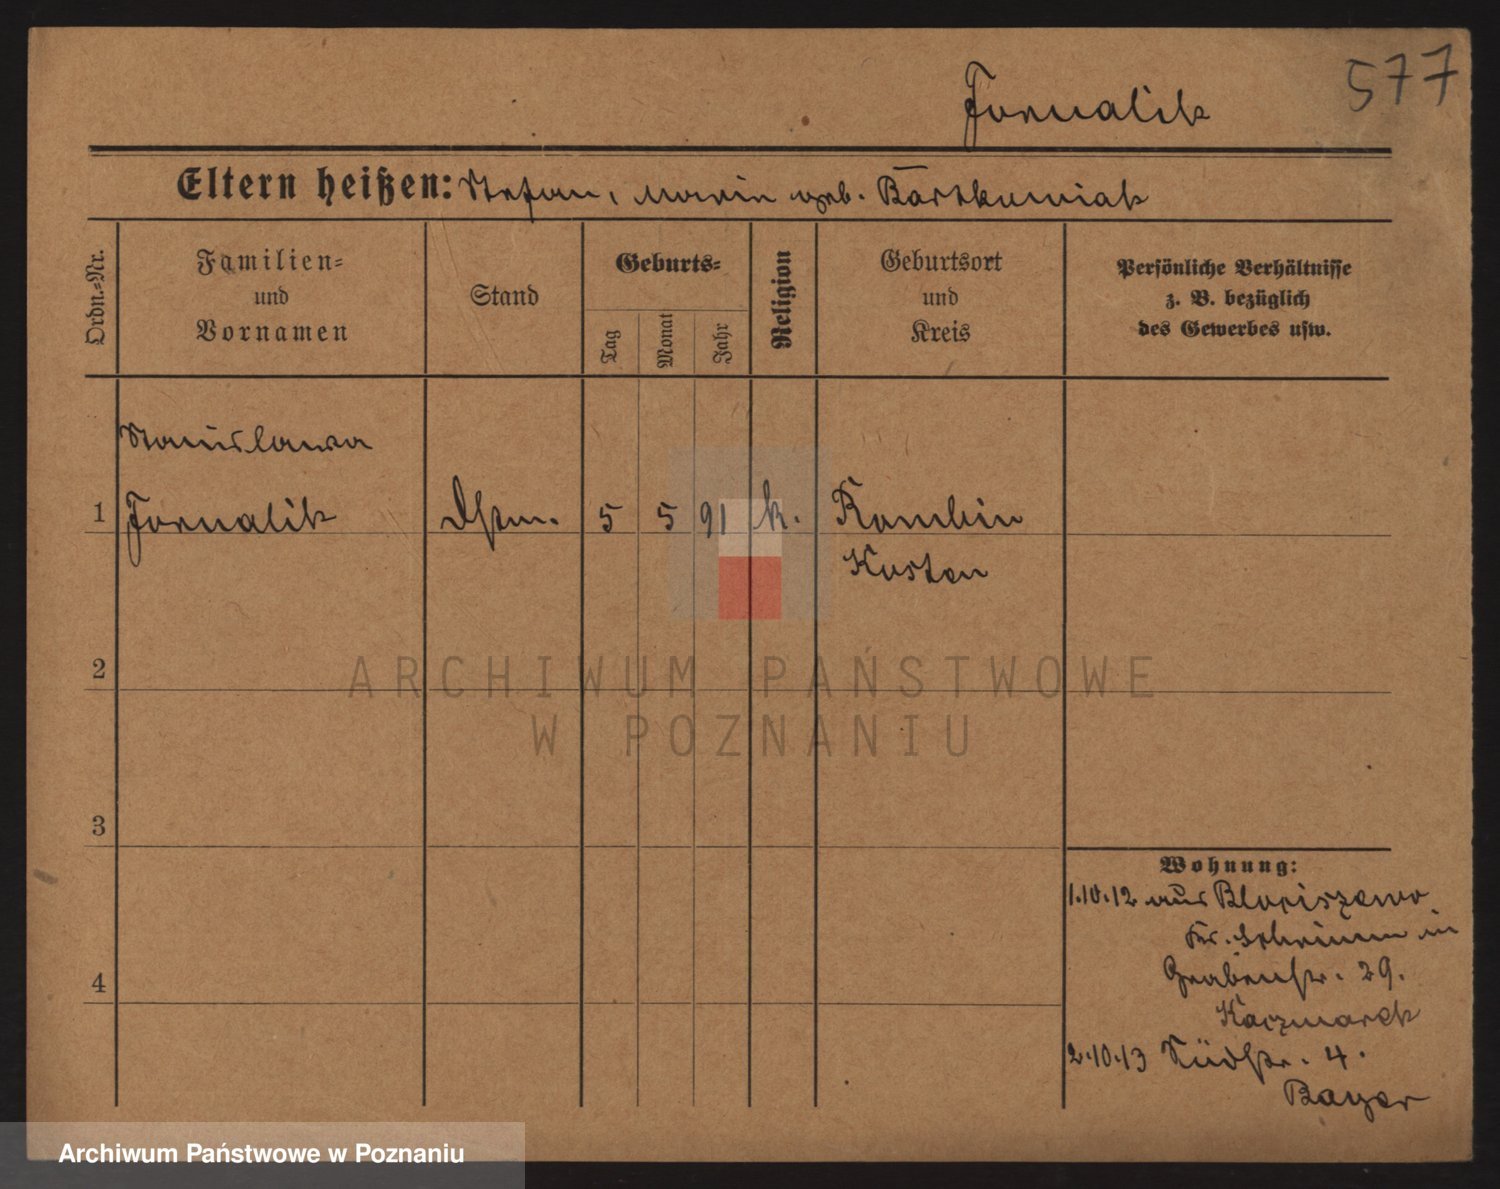 577
Fornalik
Eltern heißen: Stefan, Marie geb. Bartkowiak
Ordn.=Nr.
Familien=
und
Vornamen
Stand
Geburts=
Tag
Monat
Jahr
Religion
Geburtsort
und
Kreis
Persönliche Verhältnisse
z. B. bezüglich
des Gewerbes usw.
Stanislawa
1 Fornalik Dstm. 5 5 91 k. Rombin
Kosten
2
3
4
Wohnung:
1.10.12 aus Blociszewo
Kr. Schrimm in
Grabenstr. 29.
Kaczmarek
2.10.13 Südstr. 4.
Bayer
ARCHIWUM PAŃSTWOWE
W POZNANIU
Archiwum Państwowe w Poznaniu